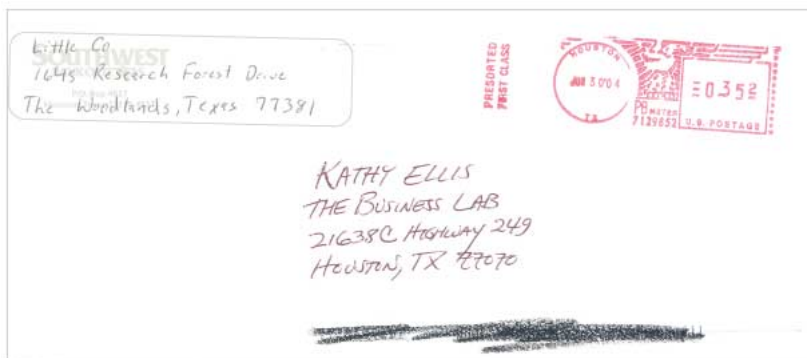 Little Co
SOUTHWEST
1645 Research Forest Drive
The Woodlands, Texas 77381
PRESORTED
FIRST CLASS
HOUSTON
JUN 30'04
TX
0.352
PB METER
7129652 U.S. POSTAGE
KATHY ELLIS
THE BUSINESS LAB
21638C HIGHWAY 249
HOUSTON, TX 77070